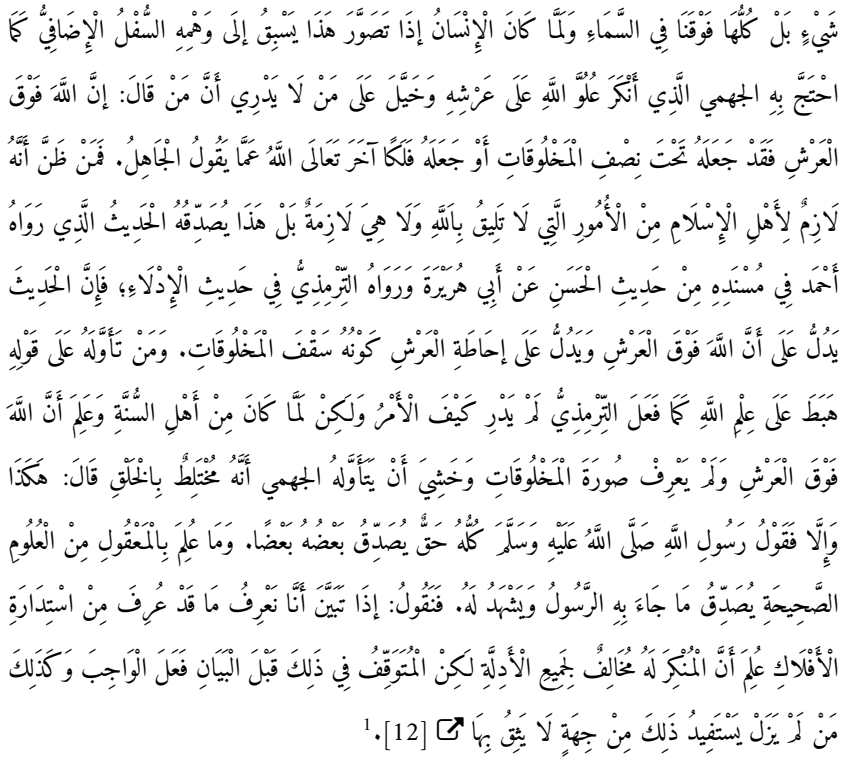 شَيْءٍ بَلْ كُلُّهَا فَوْقَنَا فِي السَّمَاءِ وَلَمَّا كَانَ الْإِنْسَانُ إذَا تَصَوَّرَ هَذَا يَسْبِقُ إلَى وَهْمِهِ السُّفْلُ الْإِضَافِيُّ كَمَا
احْتَجَّ بِهِ الجهمي الَّذِي أَنْكَرَ عُلُوَّ اللَّهِ عَلَى عَرْشِهِ وَخَيَّلَ عَلَى مَنْ لَا يَدْرِي أَنَّ مَنْ قَالَ: إنَّ اللَّهَ فَوْقَ
الْعَرْشِ فَقَدْ جَعَلَهُ تَحْتَ نِصْفِ الْمَخْلُوقَاتِ أَوْ جَعَلَهُ فَلَكًا آخَرَ تَعَالَى اللَّهُ عَمَّا يَقُولُ الْجَاهِلُ. فَمَنْ ظَنَّ أَنَّهُ
لَازِمٌ لِأَهْلِ الْإِسْلَامِ مِنْ الْأُمُورِ الَّتِي لَا تَلِيقُ بِاَللَّهِ وَلَا هِيَ لَازِمَةٌ بَلْ هَذَا يُصَدِّقُهُ الْحَدِيثُ الَّذِي رَوَاهُ
أَحْمَد فِي مُسْنَدِهِ مِنْ حَدِيثِ الْحَسَنِ عَنْ أَبِي هُرَيْرَةَ وَرَوَاهُ التِّرْمِذِيُّ فِي حَدِيثِ الْإِدْلَاءِ؛ فَإِنَّ الْحَدِيثَ
يَدُلُّ عَلَى أَنَّ اللَّهَ فَوْقَ الْعَرْشِ وَيَدُلُّ عَلَى إحَاطَةِ الْعَرْشِ كَوْنُهُ سَقْفَ الْمَخْلُوقَاتِ. وَمَنْ تَأَوَّلَهُ عَلَى قَوْلِهِ
هَبَطَ عَلَى عِلْمِ اللَّهِ كَمَا فَعَلَ التِّرْمِذِيُّ لَمْ يَدْرِ كَيْفَ الْأَمْرُ وَلَكِنْ لَمَّا كَانَ مِنْ أَهْلِ السُّنَّةِ وَعَلِمَ أَنَّ اللَّهَ
فَوْقَ الْعَرْشِ وَلَمْ يَعْرِفْ صُورَةَ الْمَخْلُوقَاتِ وَخَشِيَ أَنْ يَتَأَوَّلَهُ الجهمي أَنَّهُ مُخْتَلِطٌ بِالْخَلْقِ قَالَ: هَكَذَا
وَإِلَّا فَقَوْلُ رَسُولِ اللَّهِ صَلَّى اللَّهُ عَلَيْهِ وَسَلَّمَ كُلُّهُ حَقٌّ يُصَدِّقُ بَعْضُهُ بَعْضًا. وَمَا عُلِمَ بِالْمَعْقُولِ مِنْ الْعُلُومِ
الصَّحِيحَةِ يُصَدِّقُ مَا جَاءَ بِهِ الرَّسُولُ وَيَشْهَدُ لَهُ. فَنَقُولُ: إذَا تَبَيَّنَ أَنَّا نَعْرِفُ مَا قَدْ عُرِفَ مِنْ اسْتِدَارَةِ
الْأَفْلَاكِ عُلِمَ أَنَّ الْمُنْكِرَ لَهُ مُخَالِفٌ لِجَمِيعِ الْأَدِلَّةِ لَكِنْ الْمُتَوَقِّفُ فِي ذَلِكَ قَبْلَ الْبَيَانِ فَعَلَ الْوَاجِبَ وَكَذَلِكَ
مَنْ لَمْ يَزَلْ يَسْتَفِيدُ ذَلِكَ مِنْ جِهَةٍ لَا يَثِقُ بِهَا [12].1